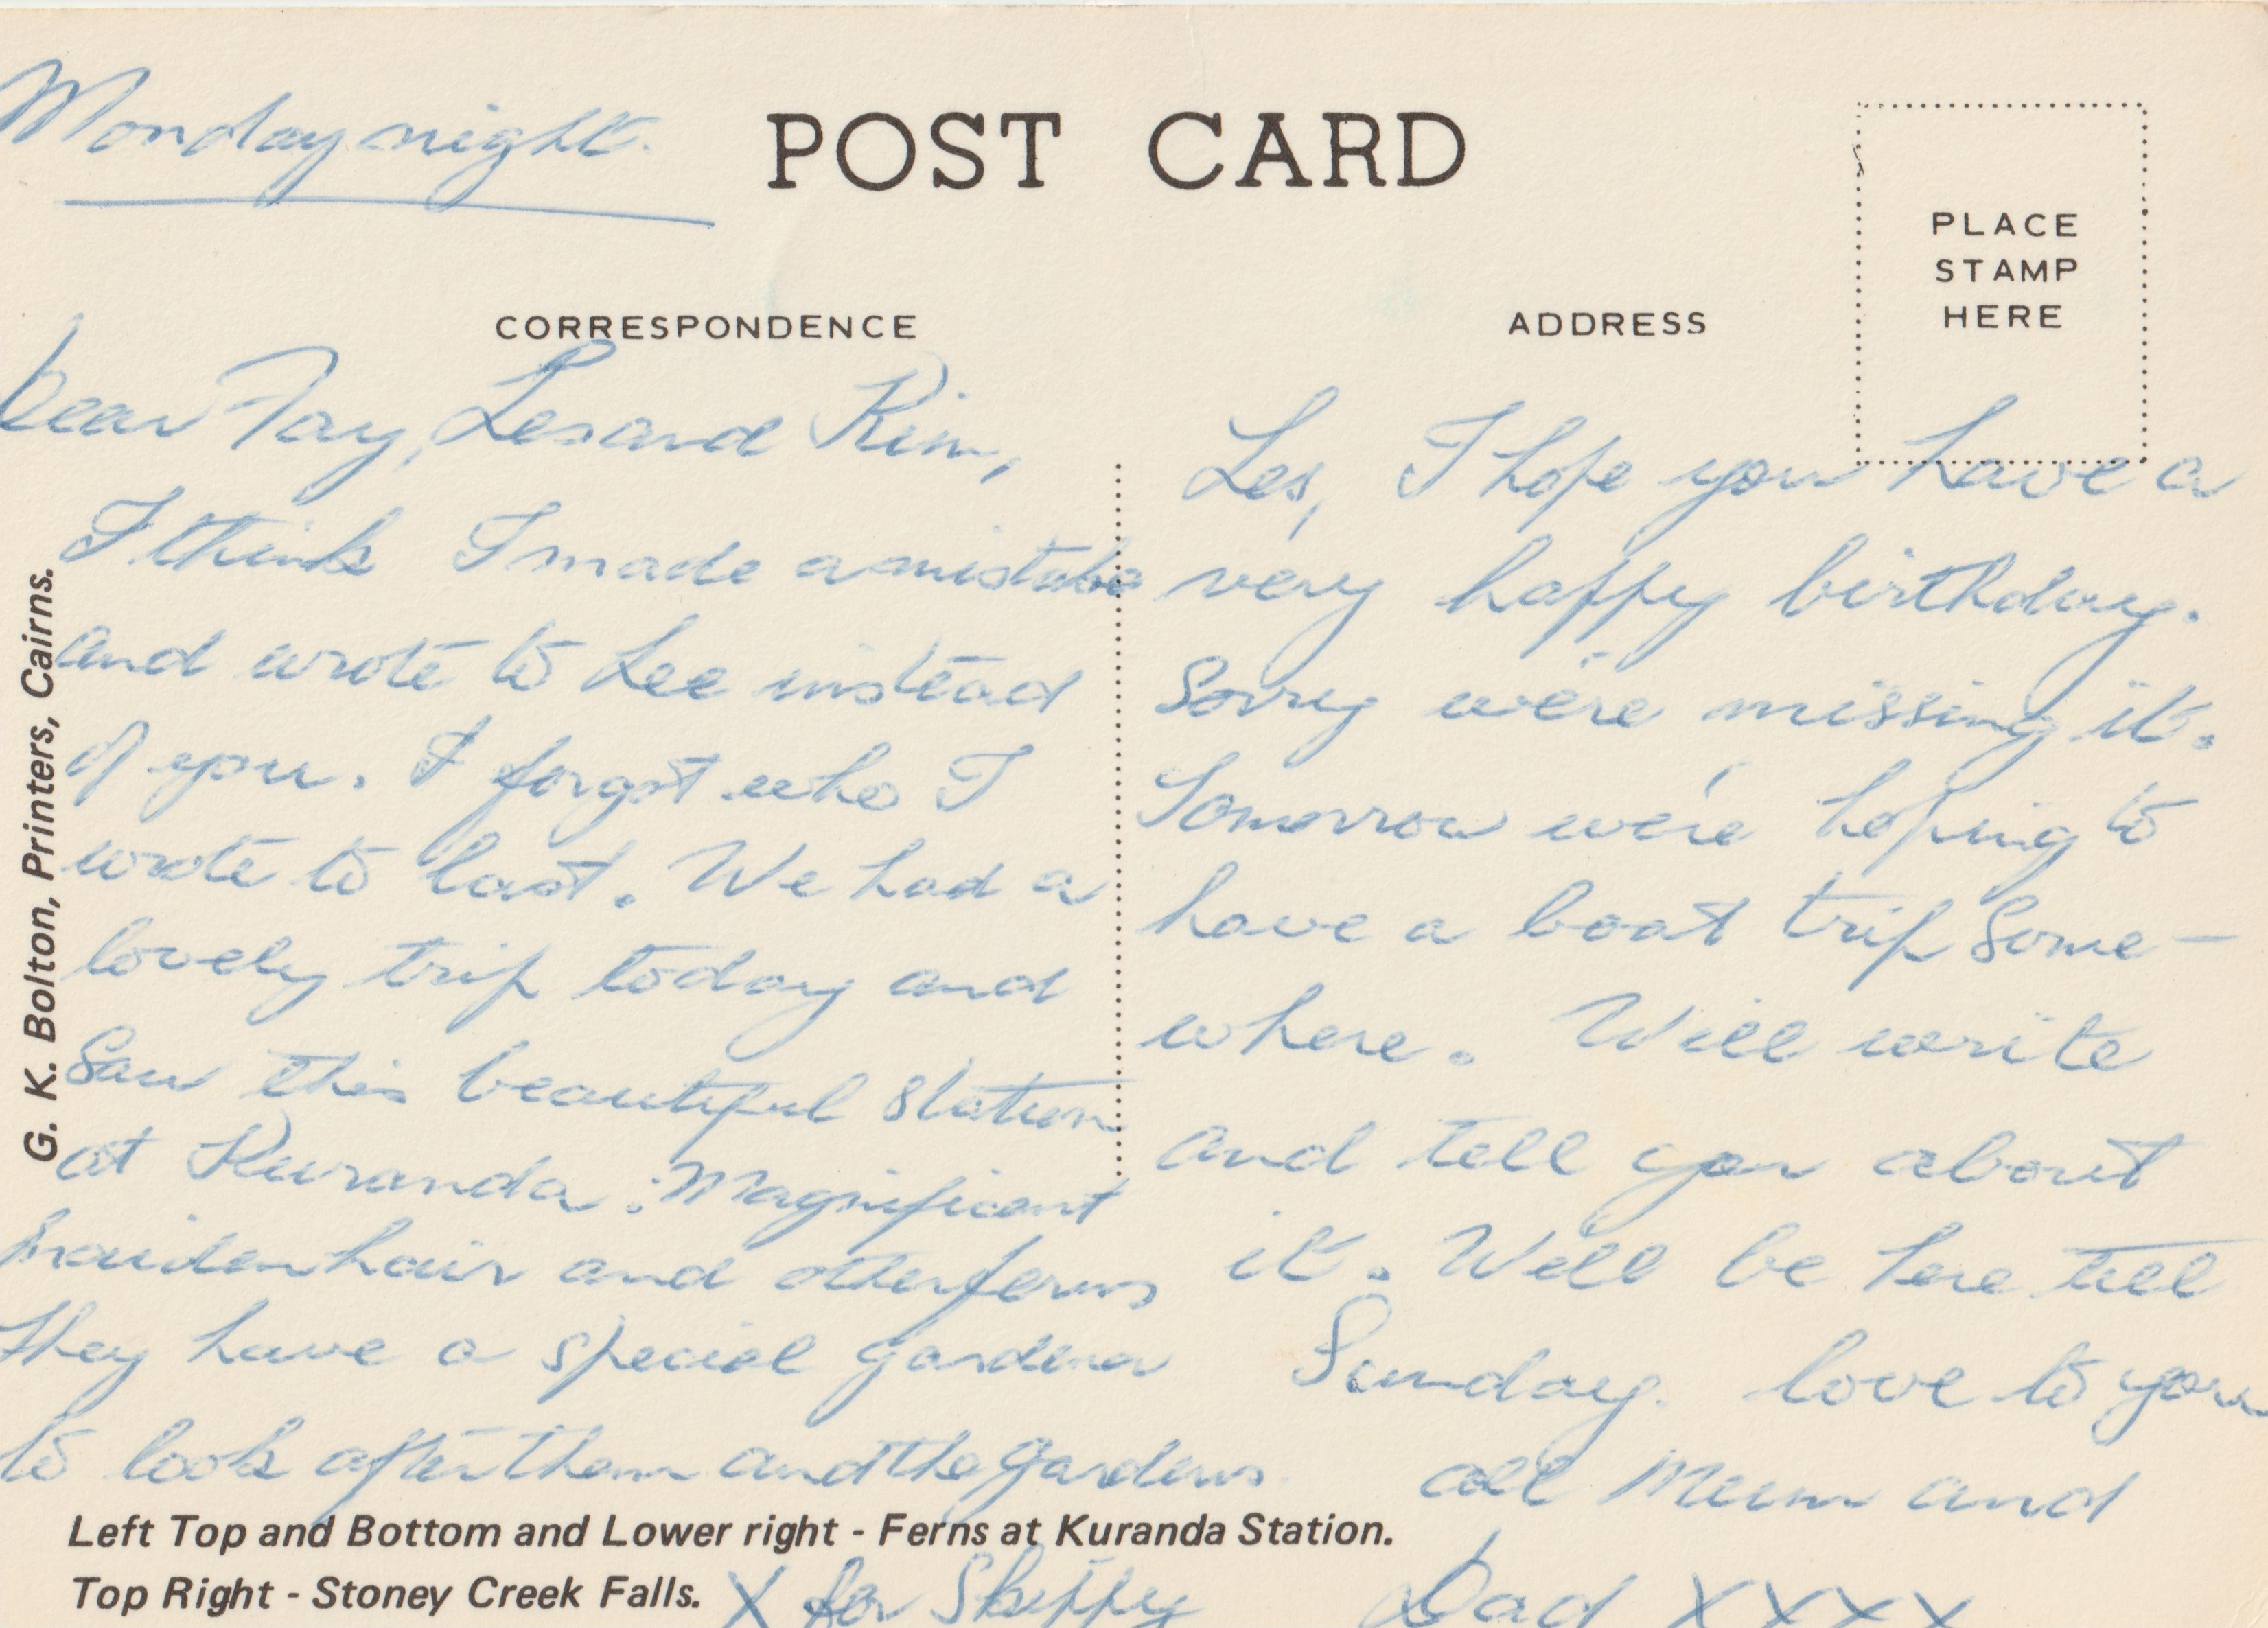 Monday night.
POST CARD
PLACE
STAMP
HERE
CORRESPONDENCE
ADDRESS
Dear Fay, Les and Kim,
I think I made a mistake
and wrote to Lee instead
of you. I forgot who I
wrote to last. We had a
lovely trip today and
Saw this beautiful station
at Kuranda. Magnificent
maidenhair and other ferns
They have a special gardener
to look after them and the gardens
Les, I hope you have a
very happy birthday.
Sorry we're missing it.
Tomorrow we're hoping to
have a boat trip Some-
where. Will write
and tell you about
it. We'll be here till
Sunday. love to you
all Mum and
Dad XXXX
X for Skippy
Left Top and Bottom and Lower right - Ferns at Kuranda Station.
Top Right - Stoney Creek Falls.
G. K. Bolton, Printers, Cairns.